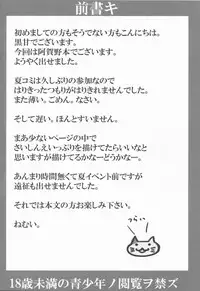 前書キ
初めましての方もそうでない方もこんにちは。
黒甘でございます。
今回は阿賀野本でございます。
ようやく出せました。
夏コミは久しぶりの参加なので
はりきったつもりがはりきれませんでした。
また薄い。ごめん。なさい。
そして遅い。ほんとすいません。
まあ少ないページの中で
さいしんえいっぷりを描けてたらいいなと
思いますが描けてるかなーどうかなー。
あんまり時間無くて夏イベント前ですが
遠征も出せませんでした。
それでは本文の方お楽しみ下さい。
ねむい。
つらい
18歳未満の青少年ノ閲覧ヲ禁ズ